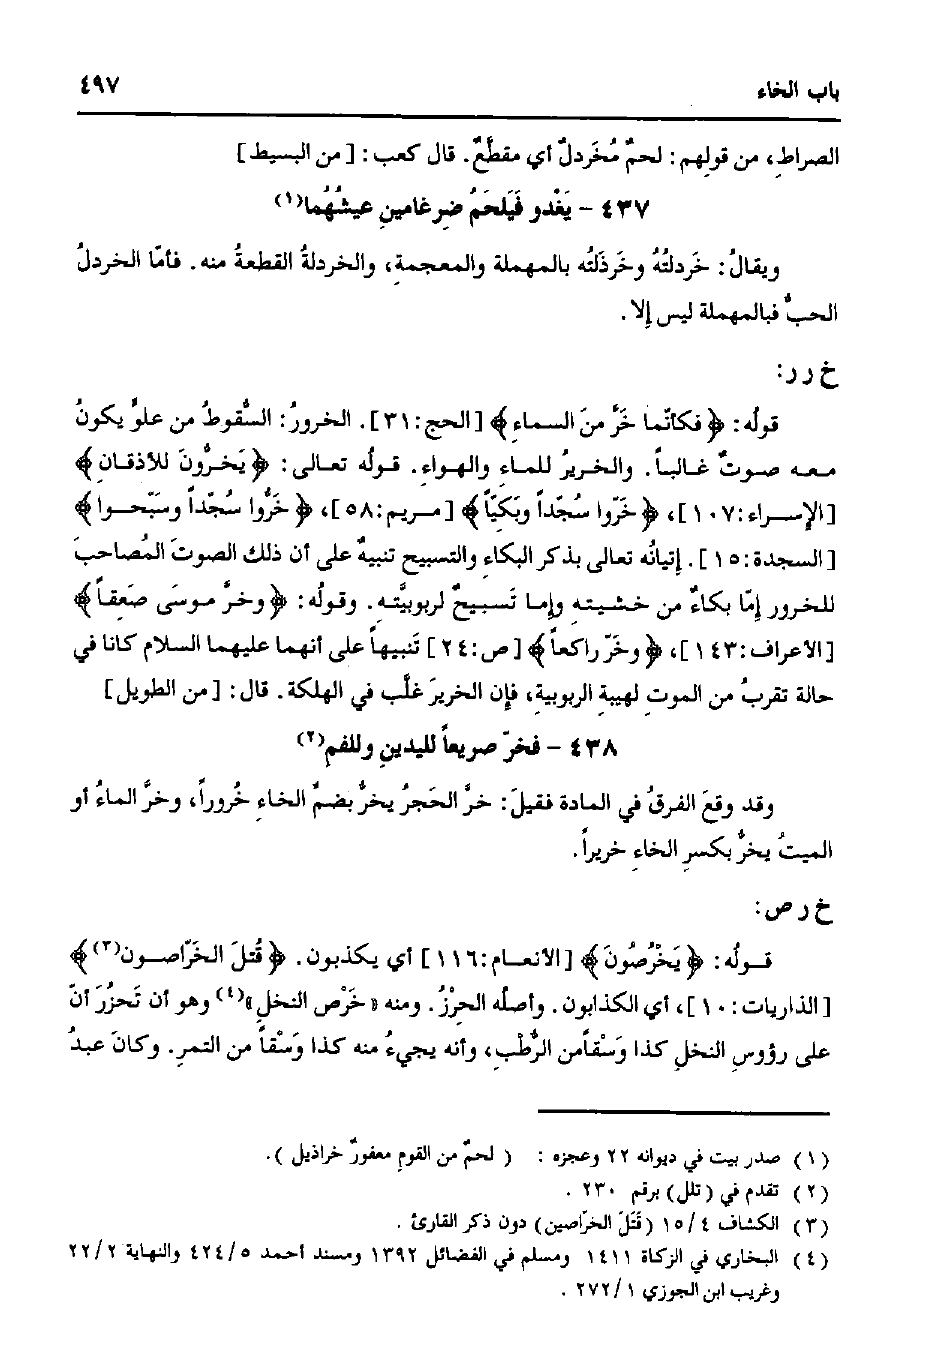 باب الخاء ٤٩٧
الصراطِ، من قولهم: لحمٌ مُخَردلٌ أي مقطَّعٌ. قال كعب: [من البسيط]
٤٣٧ - يَغْدو فَيَلحَمُ ضِرغامينِ عيشُهُما(١)
ويقالُ: خَردلتُهُ وخَرذَلتُه بالمهملة والمعجمةِ، والخردلةُ القطعةُ منه. فأمّا الخردلُ
الحبُّ فبالمهملة ليس إلا.
خ ر ر:
قولُه: ﴿فكأنَّما خَرَّ منَ السماءِ﴾ [الحج:٣١]. الخرورُ: السُّقوطُ من علوٍّ يكونُ
معه صوتٌ غالباً. والخريرُ للماءِ والهواءِ. قولُه تعالى: ﴿يَخرُّونَ للأذقانِ﴾
[الإسراء:١٠٧]، ﴿خَرّوا سُجّداً وبَكيّاً﴾ [مريم:٥٨]، ﴿خَرُّوا سُجّداً وسَبّحوا﴾
[السجدة:١٥]. إتيانُه تعالى بذكر البكاء والتسبيح تنبيهٌ على أن ذلك الصوتَ المُصاحبَ
للخرور إمّا بكاءٌ من خشيتهِ وإما تَسبيحٌ لربوبيَّتهِ. وقولُه: ﴿وخرَّ موسَى صَعِقاً﴾
[الأعراف:١٤٣]، ﴿وخَرّ راكعاً﴾ [ص:٢٤] تَنبيهاً على أنهما عليهما السلام كانا في
حالة تقربُ من الموتِ لهيبةِ الربوبيةِ، فإن الخريرَ غلَّب في الهلكة. قال: [من الطويل]
٤٣٨ - فخرّ صريعاً لليدينِ وللفمِ(٢)
وقد وقعَ الفرقُ في المادة فقيلَ: خرَّ الحَجرُ يخرُّ بضمِّ الخاءِ خُروراً، وخرَّ الماءُ أو
الميتُ يخرُّ بكسرِ الخاءِ خريراً.
خ ر ص:
قولُه: ﴿يَخْرُصُونَ﴾ [الأنعام:١١٦] أي يكذبون. ﴿قُتلَ الخَرّاصون(٣)﴾
[الذاريات:١٠]، أي الكذابون. وأصلُه الحرْزُ. ومنه «خَرْص النخلِ»(٤) وهو أن تَحزُرَ أنّ
على رؤوسِ النخلِ كذا وَسْقاًمن الرُّطبِ، وأنه يجيءُ منه كذا وَسْقاً من التمرِ. وكانَ عبدُ
(١) صدر بيت في ديوانه ٢٢ وعجزه : ( لحمٌ من القوم معفورٌ خراذيل ).
(٢) تقدم في (تلل) برقم ٢٣٠ .
(٣) الكشاف ٤/ ١٥ (قَتَلَ الخرّاصين) دون ذكر القارئ .
(٤) البخاري في الزكاة ١٤١١ ومسلم في الفضائل ١٣٩٢ ومسند أحمد ٥/ ٤٢٤ والنهاية ٢/ ٢٢
وغريب ابن الجوزي ١/ ٢٧٢ .